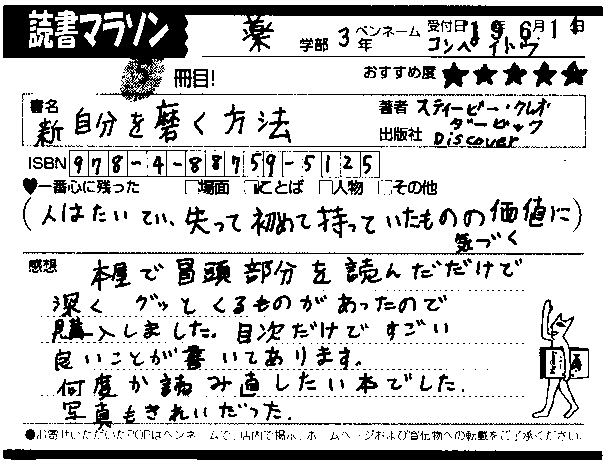 読書マラソン 薬 学部 3年 ペンネーム コンペイトウ 受付日 19年6月1日
5 冊目! おすすめ度 ★★★★★
書名 新 自分を磨く方法 著者 スティービー・クレオ・ダービック
出版社 Discover
ISBN 978-4-88759-5125
♥一番心に残った □場面 □ことば □人物 □その他
(人はたいてい、失って初めて持っていたものの価値に気づく)
感想 本屋で冒頭部分を読んだだけで
深く グッとくるものがあったので
購入しました。目次だけですごい
良いことが書いてあります。
何度か読み直したい本でした。
写真もきれいだった。
●お寄せいただいたPOPはペンネームで、店内で掲示、ホームページおよび宣伝物への転載をご了承ください。